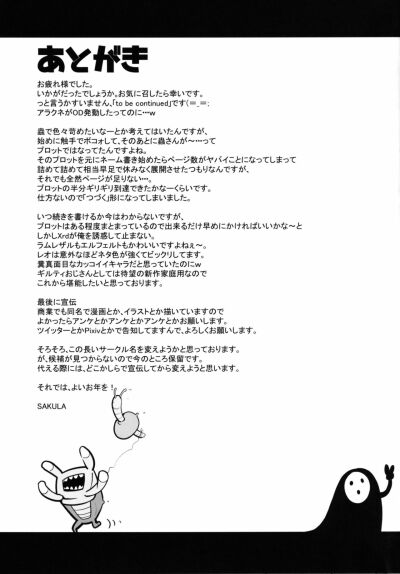 あとがき
お疲れ様でした。
いかがだったでしょうか。お気に召したら幸いです。
っと言うかすいません、「to be continued」です(＝_＝;
アラクネがOD発動したってのに…ｗ
蟲で色々苛めたいなーとか考えてはいたんですが、
始めに触手でボコォして、そのあとに蟲さんが〜って
プロットではなってたんですよね。
そのプロットを元にネーム書き始めたらページ数がヤバイことになってしまって
詰めて詰めて相当早足で休みなく展開させたつもりなんですが、
それでも全然ページが足りない…。
プロットの半分ギリギリ到達できたかなーくらいです。
仕方ないので「つづく」形になってしまいました。
いつ続きを書けるか今はわからないですが、
プロットはある程度まとまっているので出来るだけ早めにかければいいかな〜と
しかしXrdが俺を誘惑して止まない。
ラムレザルもエルフェルトもかわいいですよねぇ〜。
レオは意外なほどネタ色が強くてビックリしてます。
糞真面目なカッコイイキャラだと思っていたのにｗ
ギルティおじさんとしては待望の新作家庭用なので
これから堪能したいと思っております。
最後に宣伝
商業でも同名で漫画とか、イラストとか描いていますので
よかったらアンケとかアンケとかアンケとかお願いします。
ツイッターとかPixivとかで告知してますんで、よろしくお願いします。
そろそろ、この長いサークル名を変えようかと思っております。
が、候補が見つからないので今のところ保留です。
代える際には、どこかしらで宣伝してから変えようと思います。
それでは、よいお年を！
SAKULA